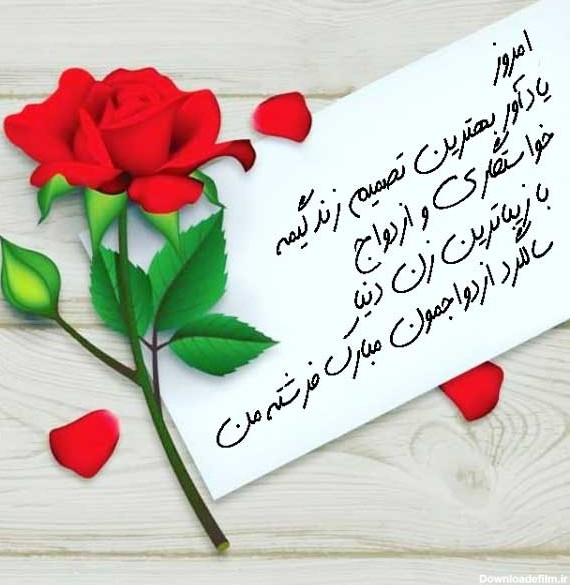 امروز
یادآور بهترین تصمیم زندگیمه
خواستگاری و ازدواج
با زیباترین زن دنیا
سالگرد ازدواجمون مبارک فرشته من
Downloadefilm.ir